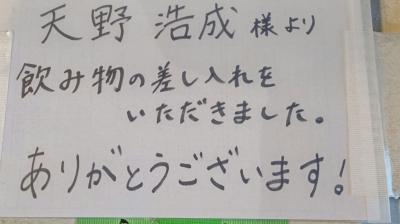 天野 浩成 様より
飲み物の差し入れを
いただきました。
ありがとうございます!